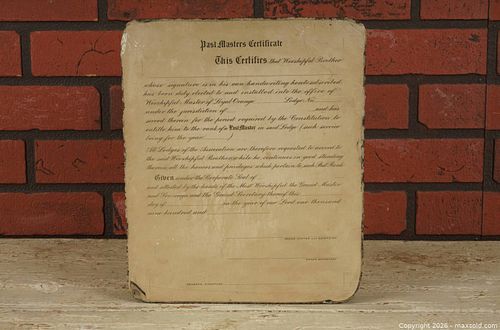 Past Masters Certificate
This Certifies that Worshipful Brother
whose signature is in his own handwriting hereto subscribed
has been duly elected to and installed into the office of
Worshipful Master of Loyal Orange Lodge No.
under the jurisdiction of and has
served therein for the period required by the Constitution to
entitle him to the rank of a Past Master in said Lodge (such service
being for the year )
All Lodges of the Association are therefore requested to accord to
the said Worshipful Brother while he continues in good standing
therein all the honors and privileges which pertain to said Past Rank
Given under the Corporate Seal of
and attested by the hands of the Most Worshipful the Grand Master
and Sovereign and the Grand Secretary thereof this
day of in the year of our Lord one thousand
nine hundred and
GRAND MASTER AND SOVEREIGN
GRAND SECRETARY
Copyright 2026 - maxsold.com